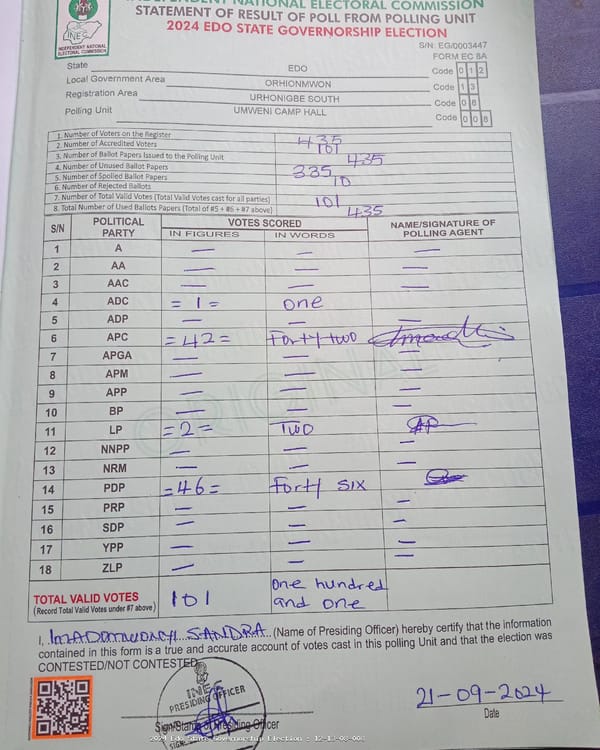 INDEPENDENT NATIONAL ELECTORAL COMMISSION
STATEMENT OF RESULT OF POLL FROM POLLING UNIT
2024 EDO STATE GOVERNORSHIP ELECTION
INEC
INDEPENDENT NATIONAL
ELECTORAL COMMISSION
S/N: EG/0003447
FORM EC 8A
State EDO Code 0 1 2
Local Government Area ORHIONMWON Code 1 3
Registration Area URHONIGBE SOUTH Code 0 8
Polling Unit UMWENI CAMP HALL Code 0 0 8
1. Number of Voters on the Register 435
2. Number of Accredited Voters 101
3. Number of Ballot Papers Issued to the Polling Unit 435
4. Number of Unused Ballot Papers 335
5. Number of Spoiled Ballot Papers
6. Number of Rejected Ballots 10
7. Number of Total Valid Votes (Total Valid Votes cast for all parties) 101
8. Total Number of Used Ballots Papers (Total of #5 + #6 + #7 above) 435
S/N POLITICAL PARTY VOTES SCORED NAME/SIGNATURE OF POLLING AGENT
IN FIGURES IN WORDS
1 A — — —
2 AA — — —
3 AAC — — —
4 ADC = 1 = one
5 ADP — — —
6 APC = 42 = Forty two
7 APGA — — —
8 APM — — —
9 APP — — —
10 BP — — —
11 LP = 2 = Two
12 NNPP — — —
13 NRM — — —
14 PDP = 46 = Forty six
15 PRP — — —
16 SDP — — —
17 YPP — — —
18 ZLP — — —
TOTAL VALID VOTES 101 one hundred and one
(Record Total Valid Votes under #7 above)
I, SANDRA (Name of Presiding Officer) hereby certify that the information
contained in this form is a true and accurate account of votes cast in this polling Unit and that the election was
CONTESTED/NOT CONTESTED
INEC
PRESIDING OFFICER
Sign/Stamp of Presiding Officer
21-09-2024
Date
ORIGINAL
2024 Edo State Governorship Election : 12-13-08-008